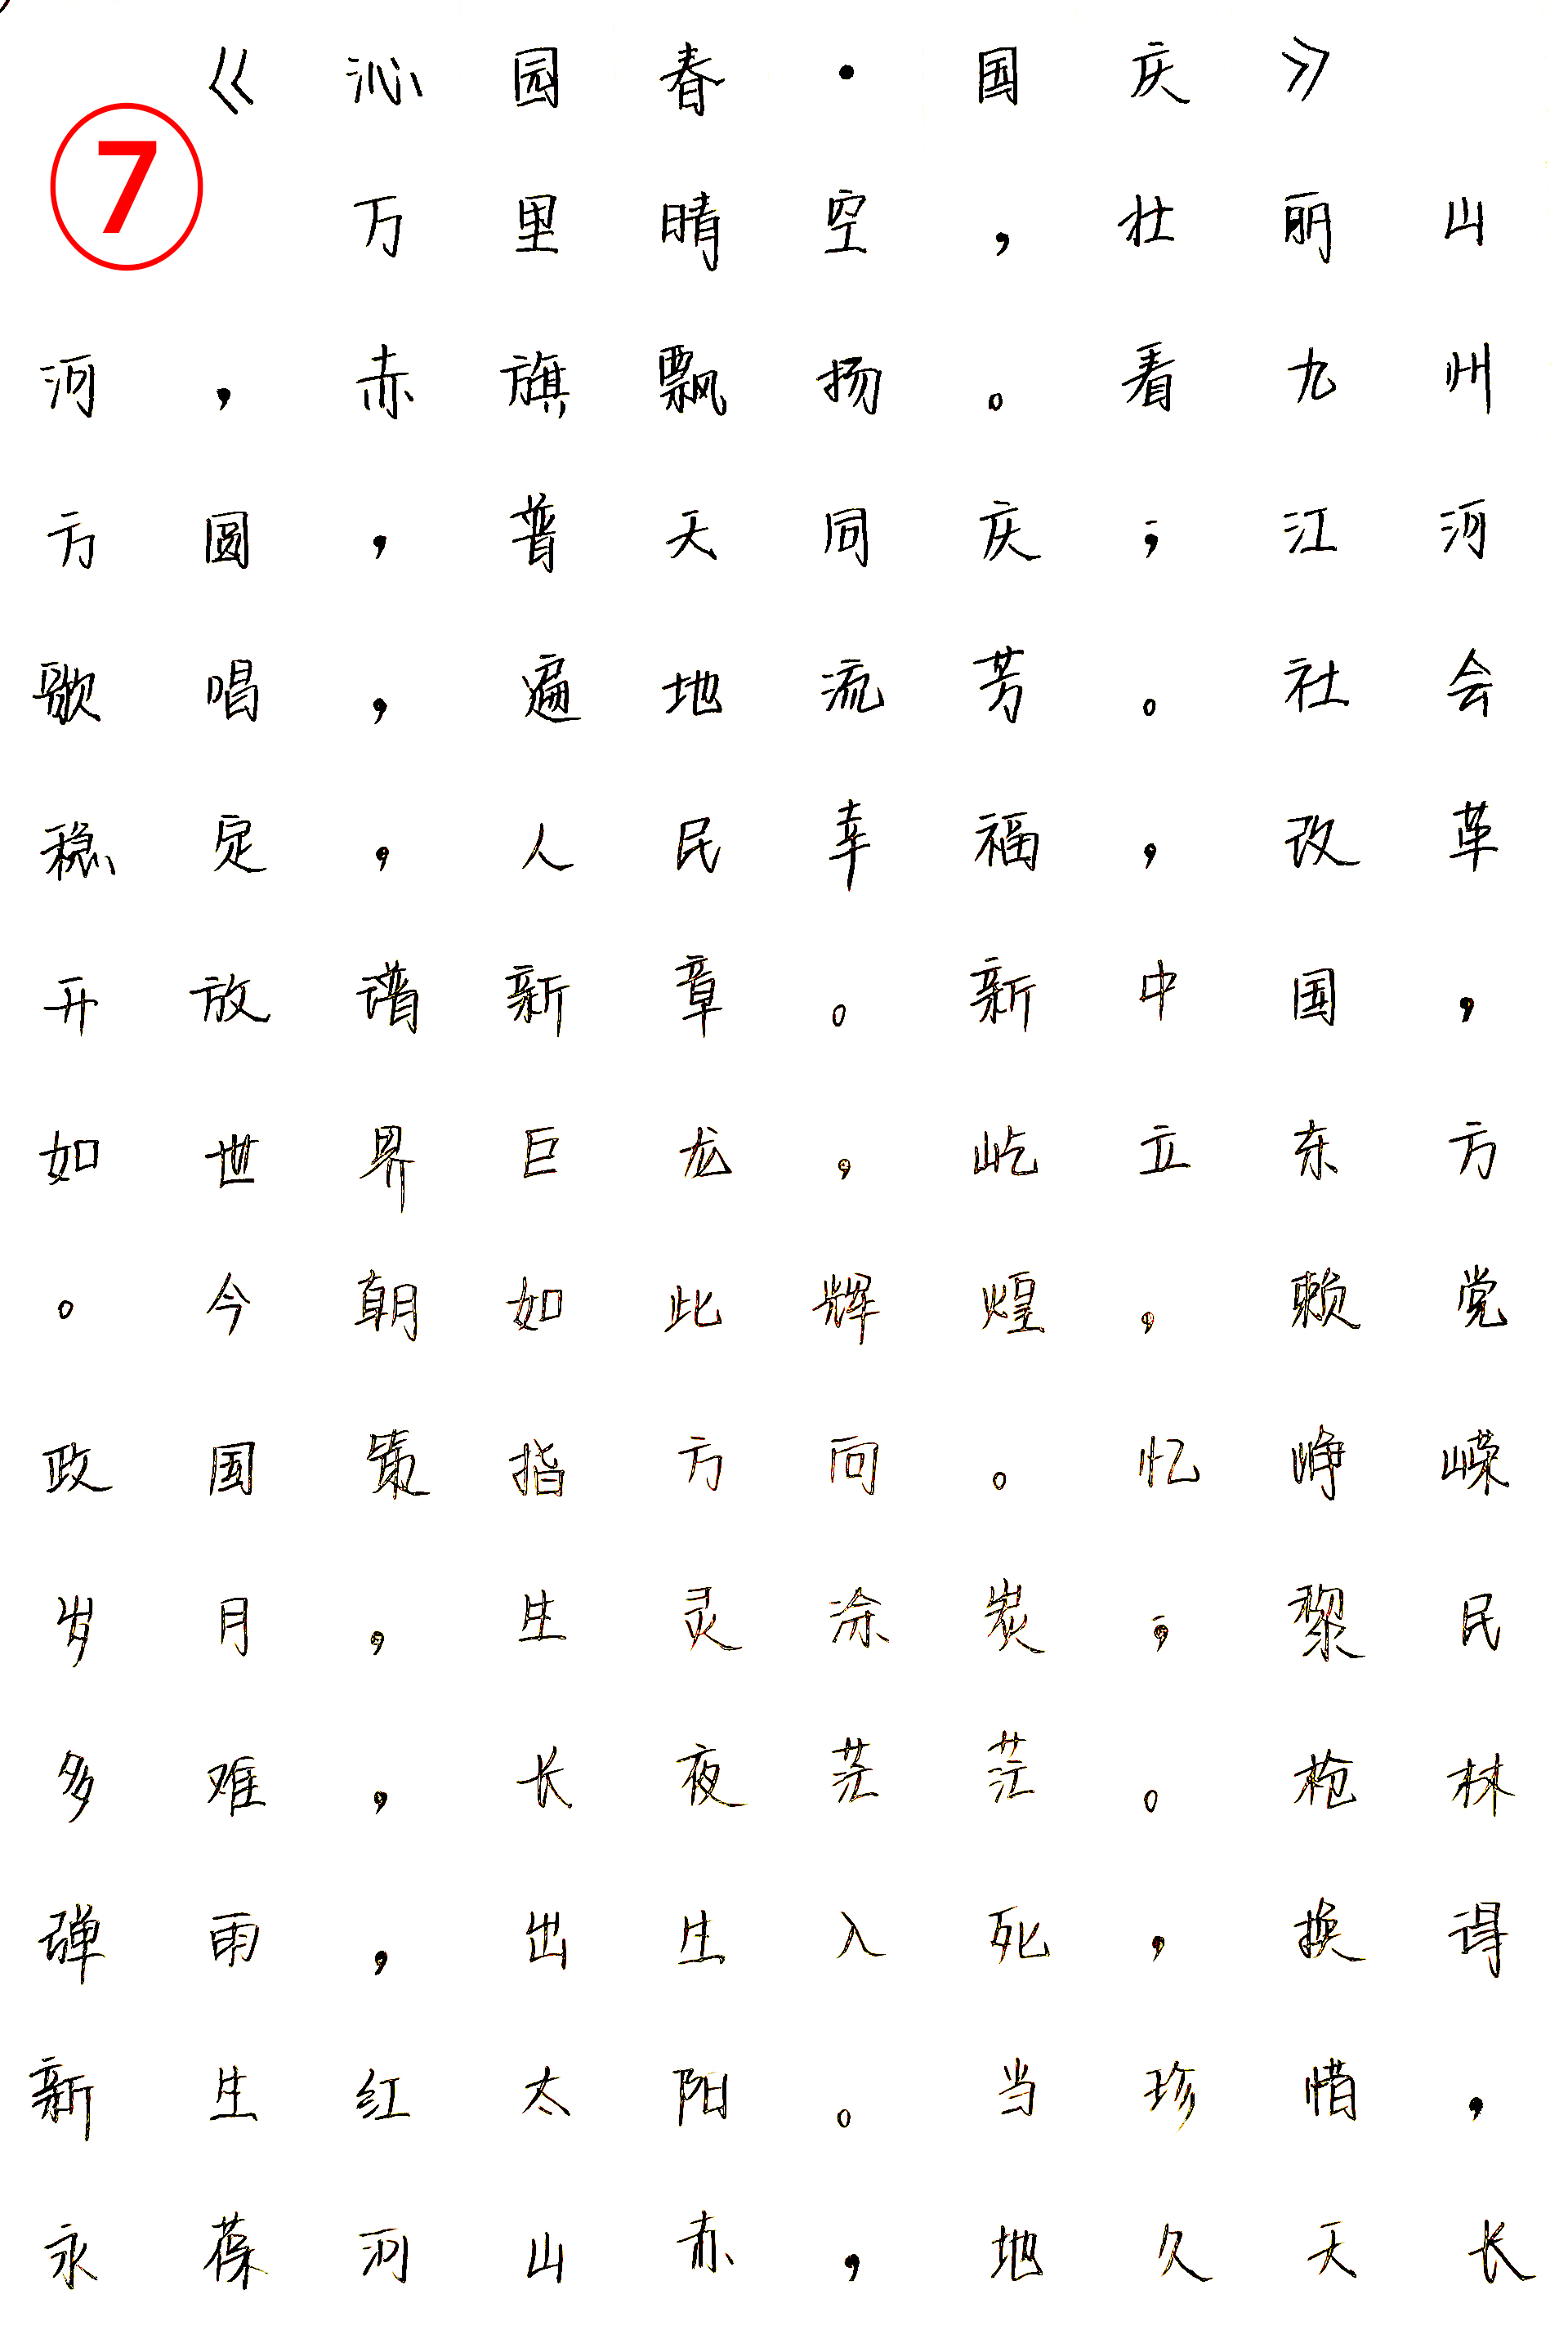 《沁园春·国庆》
⑦
万里晴空，壮丽山
河，赤旗飘扬。看九州
方圆，普天同庆；江河
歌唱，遍地流芳。社会
稳定，人民幸福，改革
开放谱新章。新中国，
如世界巨龙，屹立东方
。今朝如此辉煌，赖党
政国策指方向。忆峥嵘
岁月，生灵涂炭；黎民
多难，长夜茫茫。枪林
弹雨，出生入死，换得
新生红太阳。当珍惜，
永葆河山赤，地久天长